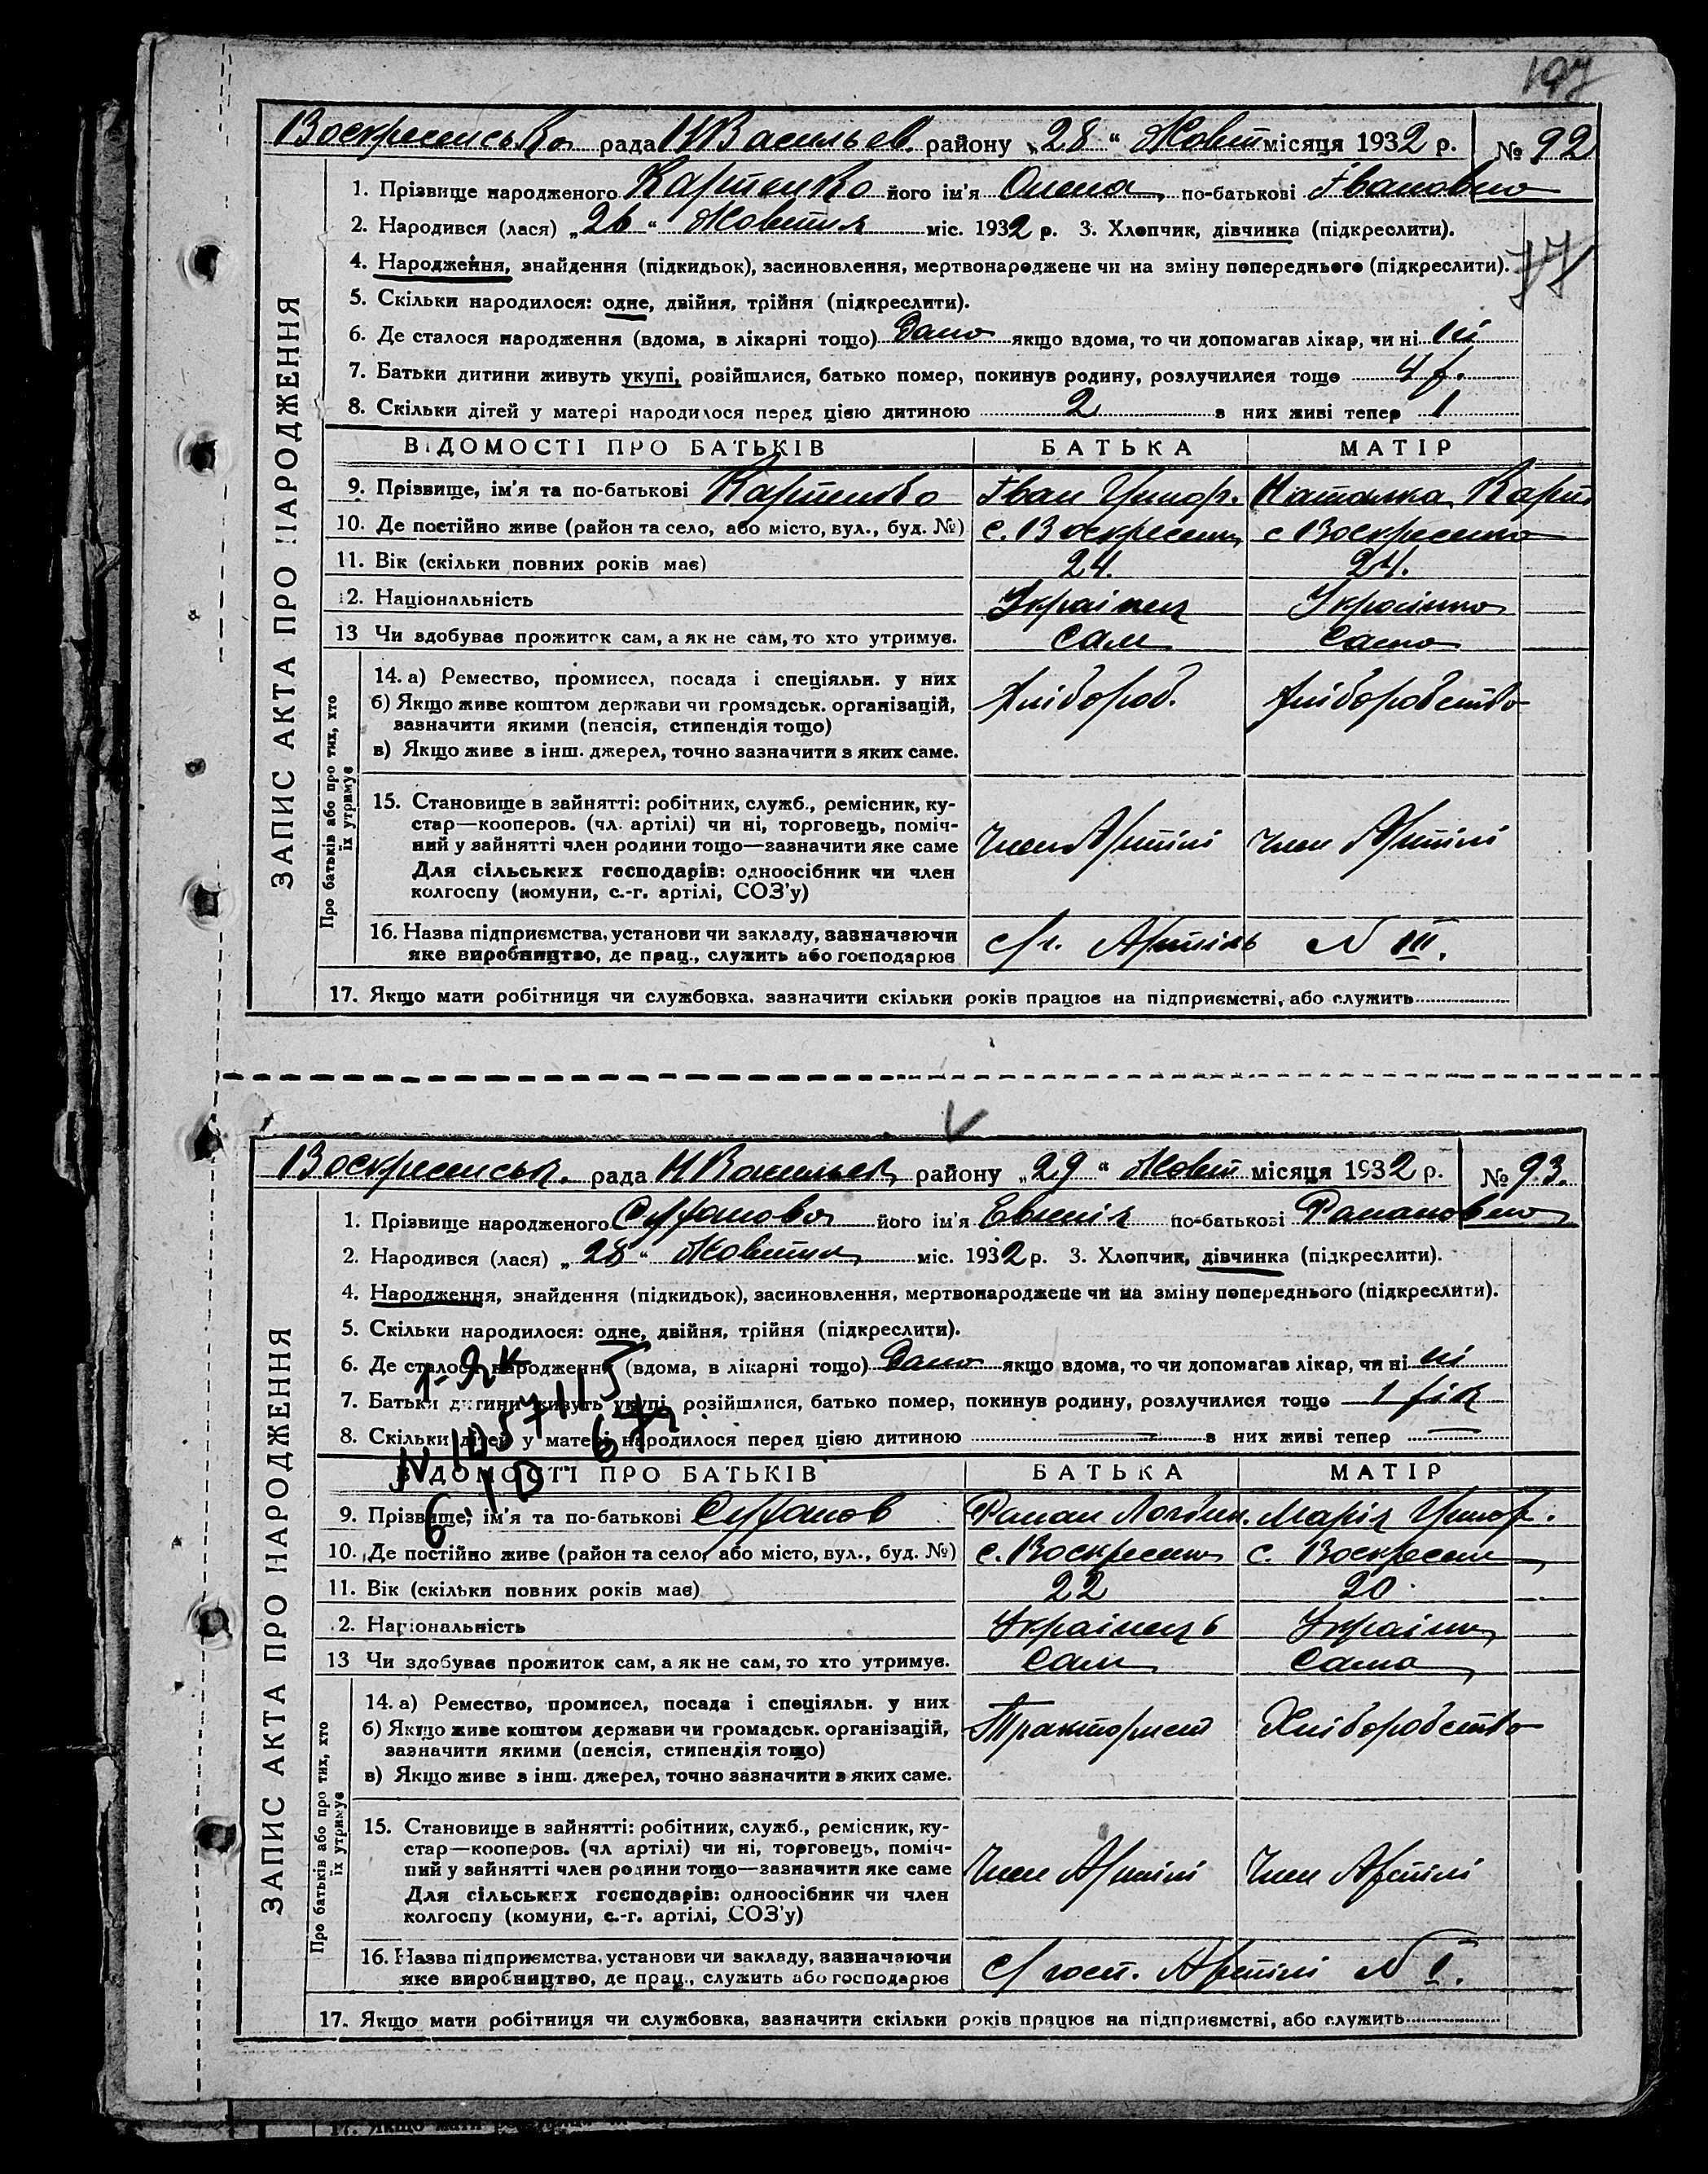 197
Воскресенська рада НВасильев. району „28“ Жовтн місяця 1932 р. № 92
1. Прізвище народженого Карпенко його ім'я Олена, по-батькові Івановна
2. Народився (лася) „26“ Жовтня міс. 1932 р. 3. Хлопчик, дівчинка (підкреслити).
77
4. Народження, знайдення (підкидьок), засиновлення, мертвонароджене чи на зміну попереднього (підкреслити).
5. Скільки народилося: одне, двійня, трійня (підкреслити).
6. Де сталося народження (вдома, в лікарні тощо) якщо вдома, то чи допомагав лікар, чи ні ні
7. Батьки дитини живуть укупі, розійшлися, батько помер, покинув родину, розлучилися тоще 4 р.
8. Скільки дітей у матері народилося перед цією дитиною 2 в них живі тепер 1
ВІДОМОСТІ ПРО БАТЬКІВ БАТЬКА МАТІР
9. Прізвище, ім'я та по-батькові Карпенко Іван Григор. Наталка Карп
10. Де постійно живе (район та село, або місто, вул., буд. №) с. Воскресенка с Воскресенка
11. Вік (скільки повних років має) 24. 24.
12. Національність Українец Українка
13 Чи здобував прожиток сам, а як не сам, то хто утримує. Сам Сама
14. а) Ремество, промисел, посада і спеціяльн. у них
б) Якщо живе коштом держави чи громадськ. організацій,
зазначити якими (пенсія, стипендія тощо)
в) Якщо живе з інш. джерел, точно зазначити з яких саме.
Хлібороб. Хліборобство
15. Становище в зайнятті: робітник, служб., ремісник, ку-
стар—кооперов. (чл. артілі) чи ні, торговець, поміч-
ний у зайнятті член родини тощо—зазначити яке саме
Для сільських господарів: одноосібник чи член
колгоспу (комуни, с.-г. артілі, СОЗ'у)
Член Артілі Член Артілі
16. Назва підприємства, установи чи закладу, зазначаючи
яке виробництво, де прац., служить або господарює
с/г. Артіль N III.
17. Якщо мати робітниця чи службовка, зазначити скільки років працює на підприємстві, або служить
ЗАПИС АКТА ПРО НАРОДЖЕННЯ
Про батьків або про тих, хто
їх утримує
Воскресенськ. рада НВасильев. району „29“ Жовт місяця 1932 р. № 93.
1. Прізвище народженого його ім'я Евгенія по-батькові Романовна
2. Народився (лася) „28“ Жовтня міс. 1932 р. 3. Хлопчик, дівчинка (підкреслити).
4. Народження, знайдення (підкидьок), засиновлення, мертвонароджене чи на зміну попереднього (підкреслити).
5. Скільки народилося: одне, двійня, трійня (підкреслити).
6. Де сталося народження (вдома, в лікарні тощо) якщо вдома, то чи допомагав лікар, чи ні ні
7. Батьки дитини живуть укупі, розійшлися, батько помер, покинув родину, розлучилися тоще 1 рік
8. Скільки дітей у матері народилося перед цією дитиною — в них живі тепер —
ВІДОМОСТІ ПРО БАТЬКІВ БАТЬКА МАТІР
9. Прізвище, ім'я та по-батькові Роман Марія Григор.
10. Де постійно живе (район та село, або місто, вул., буд. №) с. Воскресенка с. Воскресенка
11. Вік (скільки повних років має) 22 20
12. Національність Українець Українка
13 Чи здобував прожиток сам, а як не сам, то хто утримує. Сам Сама
14. а) Ремество, промисел, посада і спеціяльн. у них
б) Якщо живе коштом держави чи громадськ. організацій,
зазначити якими (пенсія, стипендія тощо)
в) Якщо живе з інш. джерел, точно зазначити з яких саме.
Тракторист Хліборобство
15. Становище в зайнятті: робітник, служб., ремісник, ку-
стар—кооперов. (чл артілі) чи ні, торговець, поміч-
ний у зайнятті член родини тощо—зазначити яке саме
Для сільських господарів: одноосібник чи член
колгоспу (комуни, с.-г. артілі, СОЗ'у)
Член Артілі Член Артілі
16. Назва підприємства, установи чи закладу, зазначаючи
яке виробництво, де прац., служить або господарює
с/госп. Артілі N I.
17. Якщо мати робітниця чи службовка, зазначити скільки років працює на підприємстві, або служить
ЗАПИС АКТА ПРО НАРОДЖЕННЯ
Про батьків або про тих, хто
їх утримує